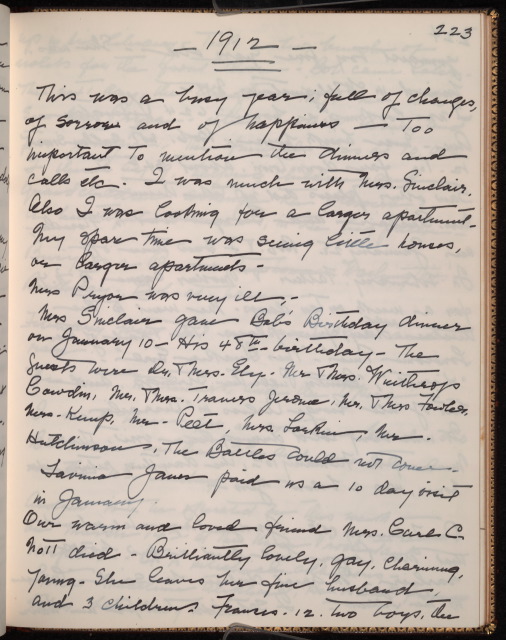 223
— 1912 —
This was a busy year; full of changes,
of sorrow and of happiness — Too
important to mention the dinners and
calls etc. I was much with Mrs. Sinclair.
Also I was looking for a larger apartment.
My spare time was seeing little houses,
or larger apartments -
Mrs Pryor was very ill, -
Mrs Sinclair gave Bob's Birthday dinner
on January 10 - His 48th birthday - The
guests were Dr. & Mrs. Ely. Mr & Mrs. Winthrop
Cowdin, Mr. & Mrs. Travers Jerome, Mr. & Mrs Fowler,
Mrs. Kemp, Mr. Peet, Mrs Larkin, Mr.
Hutchinson. The Battles could not come.
Lavinia Janes paid us a 10 day visit
in January.
Our warm and loved friend Mrs. Carl C.
died - Brilliantly lovely, gay, charming,
young - She leaves her fine husband,
and 3 children Frances. 12. two boys, the